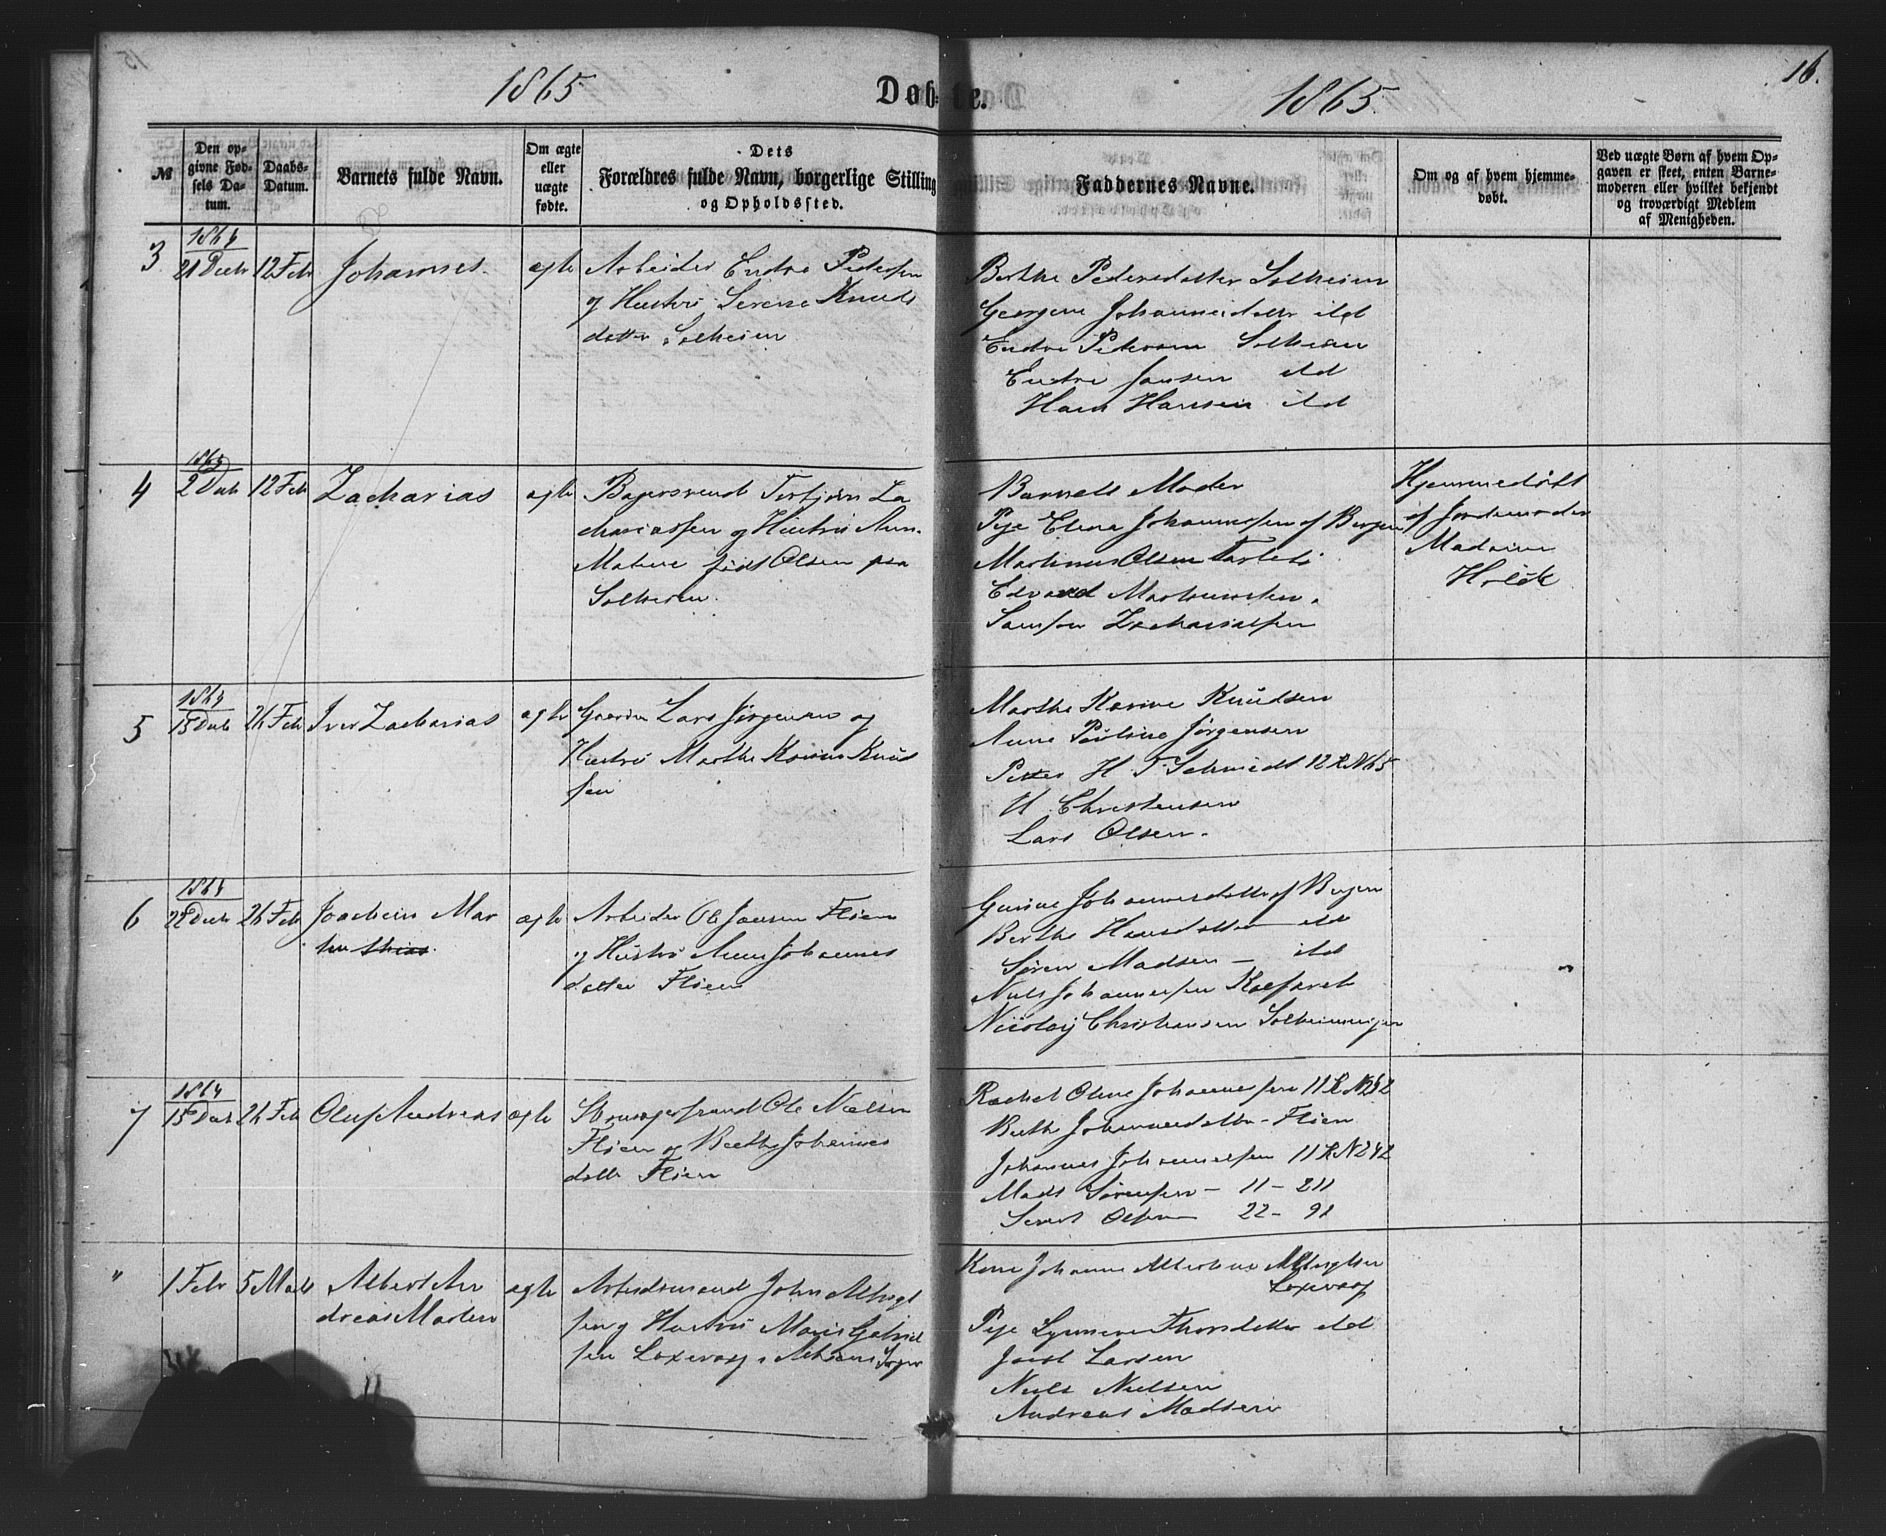 1865
Døbte.
1865
16.
№
Den opgivne Fødsels Datum.
Daabs-Datum.
Barnets fulde Navn.
Om ægte eller uægte fødte.
Dets Forældres fulde Navn, borgerlige Stilling og Opholdssted.
Faddernes Navne.
Om og af hvem hjemmedøbt.
Ved uægte Børn af hvem Opgaven er skeet, enten Barnemoderen eller hvilket bekjendt og troværdigt Medlem af Menigheden.
3
1864
21 Decbr
12 Febr
Johannes.
ægte
Arbeider Endre Pedersen
og Hustru Serene Knuds
datter Solheim
Berthe Pedersdatter Solheim
Georgine Johannesdatter ibd
Endre Pedersen Solheim
Endre Jansen ibd
Hans Hansen ibd
4
2 Decbr
12 Febr
Zacharias
ægte
Bagersvend Torbjørn Za
chariassen og Hustru Ane
Malene født Olsen paa
Solheim.
Barnets Moder
Pige Elene Johannessen af Bergen
Martinus Olsen
Edvard Martinussen.
Samson Zachariassen
Hjemmedøbt
af Jordemoder
Madame
Holck
5
1864
15 Decbr
26 Febr
Iver Zacharias
ægte
Lars Jørgensen og
Hustru Marthe Karine Knud
sen
Marthe Karine Knudsen
Anne Pauline Jørgensen
Petter H. T. Schmidt 12 R N 65
H. Christensen
Lars Olsen.
6
1864
22 Decbr
26 Febr
Joachim Mar
tin
ægte
Arbeider Ole Jansen Fløien
og Hustru Anne Johannes
datter Fløien
Gurine Johannesdatter af Bergen
Berthe Hansdatter ibd
Søren Madsen – ibd
Niels Johannessen Kalfaret
Nicolay Christiansen Solheimsvigen
7
1864
15 Decbr
26 Febr
Oluf Andreas
ægte
Ole Nielsen
Fløien og Berthe Johannes
datter Fløien
Rachel Oline Johannessen 11 R N 242
Berthe Johannesdatter – Fløien
Johannes Johannessen 11 R N 242
Mads Sørensen – 11 – 211
Sivert Olsen 22 – 91
"
1 Febr
5 Marts
Albert An
dreas Martin
ægte
Arbeidsmand John
sen og Hustru Maren Gabriel
sen Laxevaag.
Laxevaag
Pige
ibd
Joest Larsen
Niels Nielsen
Andreas Madsen